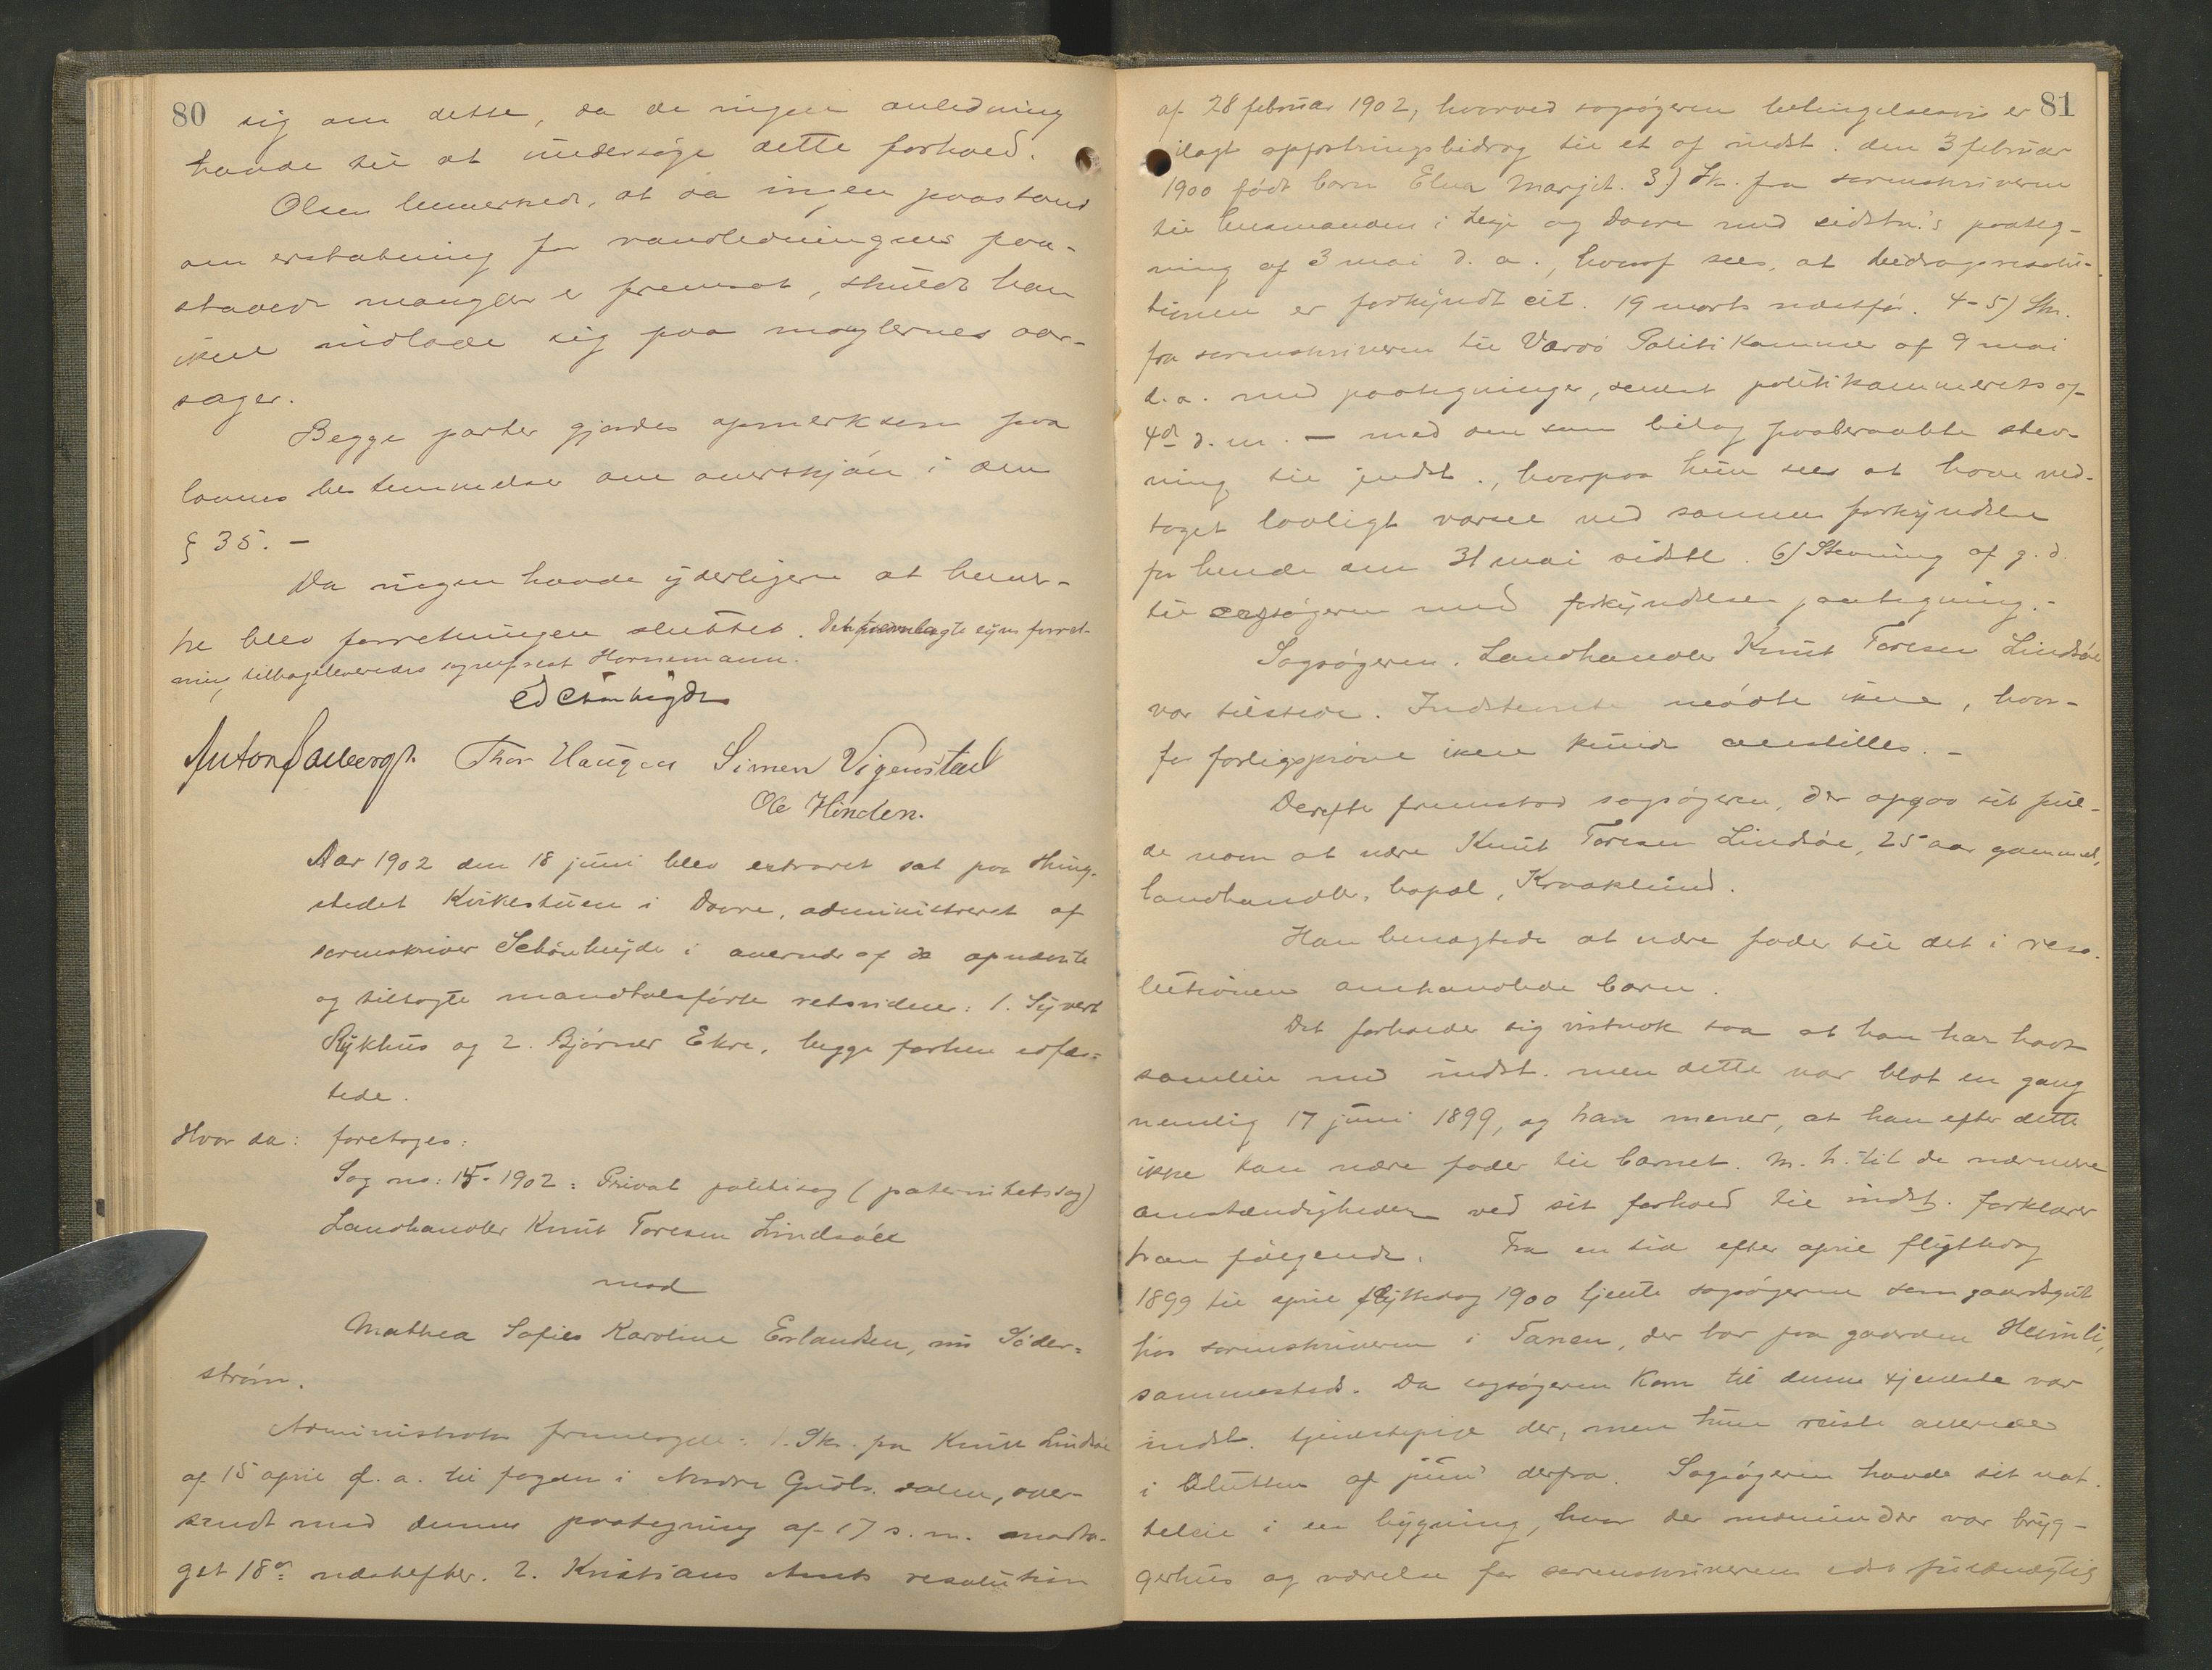 80
sig om dette, da de ingen anledning
havde til at undersøge dette forhold.
Olsen bemerkede, at da ingen paastand
om erstatning for vandledningens paa-
staaede mangler er fremsat, skulde han
ikke indlade sig paa manglernes aar-
sager.
Begge parter gjordes opmerksom paa
lovens bestemmelser om overskjøn i den
§ 35. –
Da ingen havde yderligere at bemer-
ke blev forretningen sluttet. Den fremlagte syns forret-
ning tilbageleveredes sagf Hornemann.
Ed Schønheyder
Anton Thor Haugen Simen Vigenstad
Ole Hinden.
Aar 1902 den 18 juni blev extraret sat paa thing-
stedet Kirkestuen i Dovre, administreret af
sorenskriver Schönheyder i overvær af de opnævnte
og tilsagte mandtalsførte retsvidner: 1. Syvert
Rykhus og 2. Bjørner Ekre, begge forhen edfæ-
stede.
Hvor da: foretoges:
Sag no: 15-1902: Privat politisag (paternitetssag)
Landhandler Knut Toresen Lindsøe
mod
Mathea Sofies Karoline Erlandsen, nu Söder-
strøm.
Administrator fremlagde: 1. Skr. fra Knut Lindsøe
af 15 april d. a. til fogden i Nordre Gudb. dalen, over-
sendt med dennes paategning af 17 s. m. modta-
get 18de næstefter. 2. Kristians Amts resolution
81
af 28 februar 1902, hvorved sagsøgeren betingelsesvis er
ilagt opfostringsbidrag til et af indst. den 3 februar
1900 født barn Elna Margit. 3) Skr. fra sorenskriveren
til lensmanden i Lesje og Dovre med sidstn.'s paateg-
ning af 3 mai d. a., hvoraf sees, at bidragsresolu-
tionen er forkyndt cit. 19 marts næstfør. 4-5) Skr.
fra sorenskriveren til Vardø Politikammer af 9 mai
d. a. med paategninger, senest politikammerets af
4de d. m. – med den som bilag paaberaabte stev-
ning til indst., hvorpaa hun sees at have ved-
taget lovligt varsel ved sammes forkyndelse
for hende den 31 mai sidstl. 6) Stevning af g. d.
til sagsøgeren med forkyndelses paategning. –
Sagsøgeren. Landhandler Knut Toresen Lindsøe
var tilstede. Indstevnte mødte ikke, hvor-
for forligsprøve ikke kunde anstilles. –
Derefter fremstod sagsøgeren, der opgav sit ful-
de navn at være Knut Toresen Lindsøe, 25 aar gammel,
landhandler, bopæl, Kraaklund.
Han benægtede at være fader til det i reso-
lutionen omhandlede barn.
Det forholder sig vistnok saa at han har havt
samleie med indst. men dette var blot en gang
nemlig 17 juni 1899, og han mener, at han efter dette
ikke kan være fader til barnet. M. h. til de nærmere
omstændigheder ved sit forhold til indst. forklarer
han følgende. Fra en tid efter april flyttedag
1899 til april flyttedag 1900 tjente sagsøgeren som gaardsgut
hos sorenskriveren i Tanen, der bor paa gaarden Heimli,
sammesteds. Da sagsøgeren kom til denne tjeneste var
indst. tjenestepige der, men hun reiste allerede
i slutten af juni derfra. Sagsøgeren havde sit nat-
teleie i en bygning, hvor der nedenunder var bryg-
gerhus og værelse for sorenskriverens edsv fuldmægtig